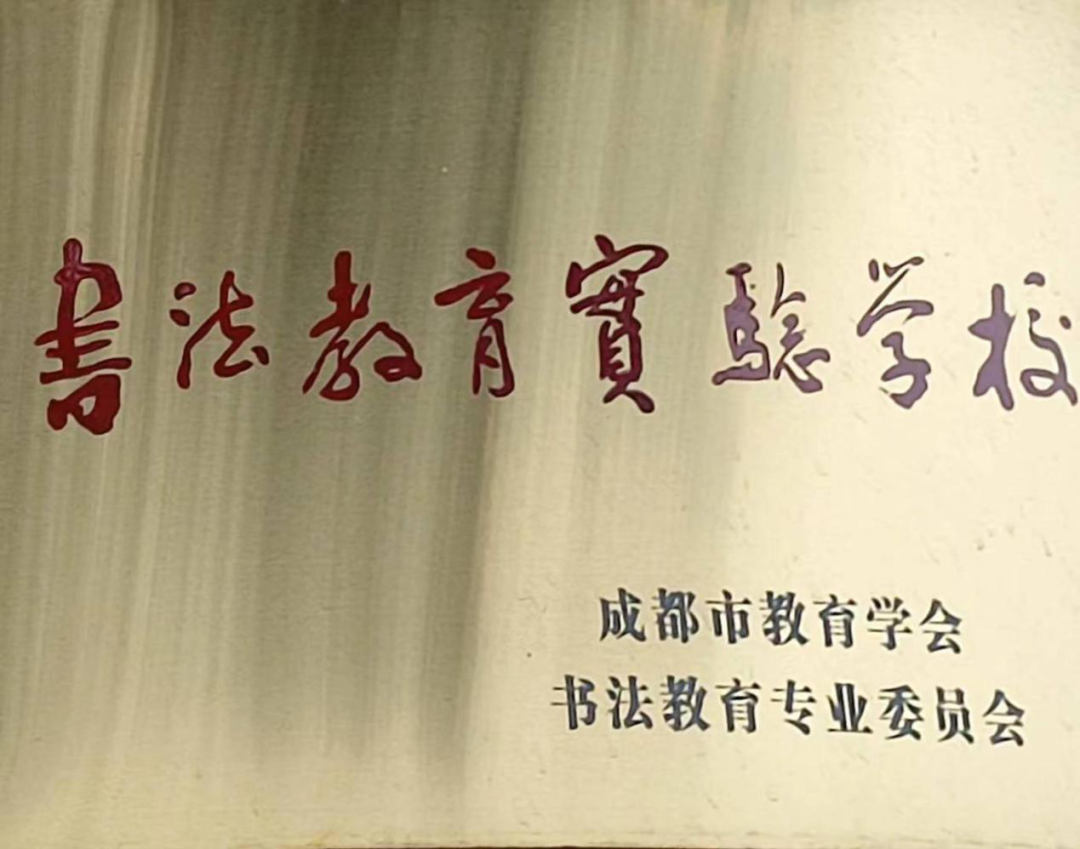 書法教育實驗学校
成都市教育学会
书法教育专业委员会